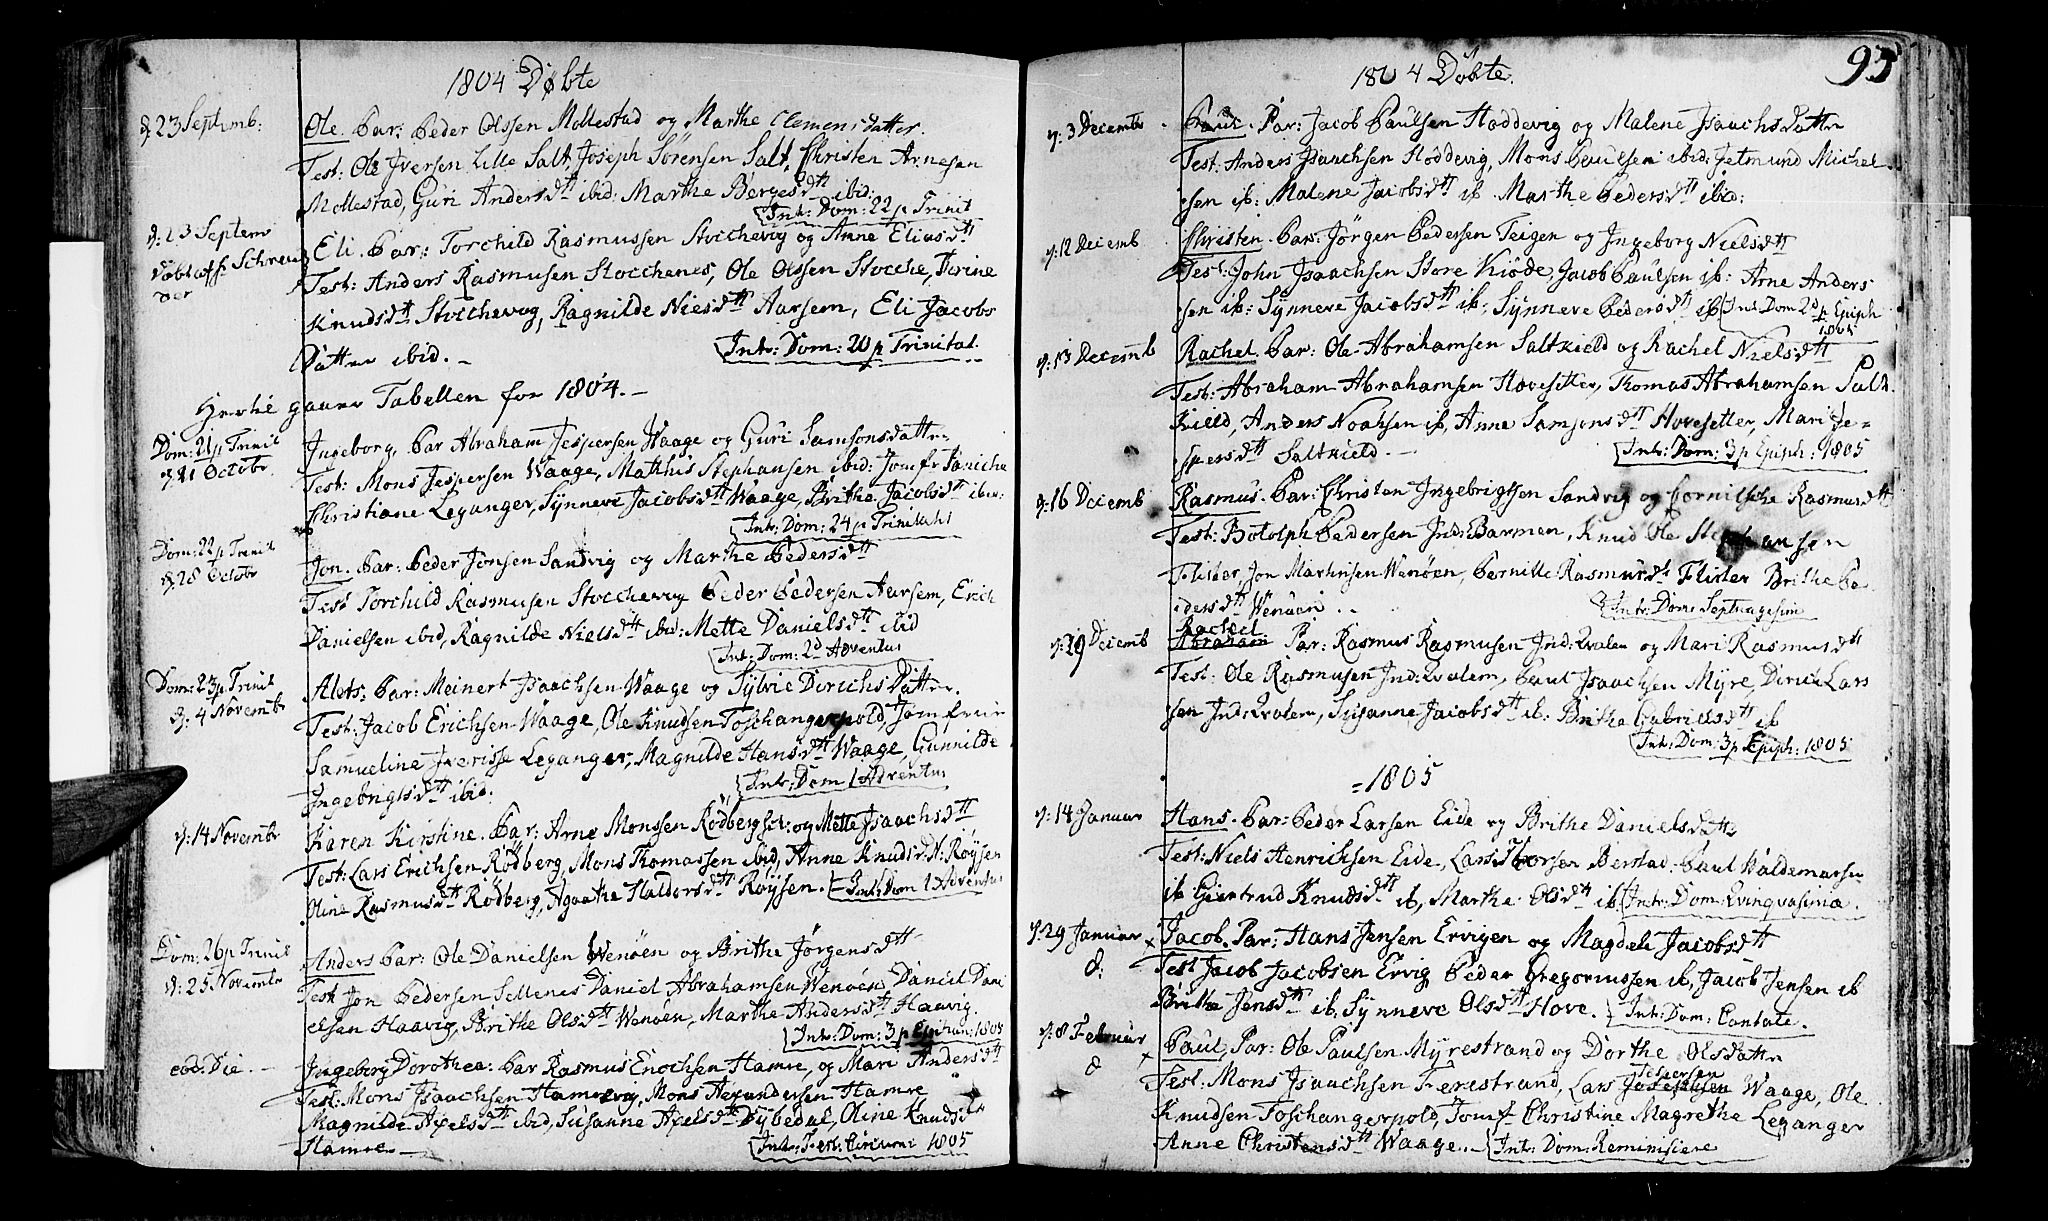 1804 Døbte
d: 23 Septemb:
Ole. Par: Peder Olssen Mollestad og Marthe Clemensdatter.
Test: Ole Iversen Lille Salt, Joseph Sørensen Salt, Christen Arnesen
Mollestad, Guri Andersdtt ibid: Marthe Børgesdtt ibid:
Intr: Dom: 22 p Trinit
d: 23 Septemb
Døbt af
Eli. Par: Torchild Rasmussen Stochevig og Anne Eliasdtt
Test: Anders Rasmusen Stocchenes, Ole Olssen Stocche, Jorine
Knudsdtt Stocchevig, Ragnilde Nielsdtt Aarsem, Eli Jacobs
Datter ibid. -
Intr: Dom: 20 p Trinitat.
Hertil gaaer Tabellen for 1804. -
Dom: 21 p Trinit
d: 21 Octobr.
Ingeborg. Par Abraham Jespersen Waage og Guri Samsonsdatter
Test: Mons Jespersen Waage, Mathis Stephansen ibid: Jomfr Daniche
Christiane Leganger, Synneve Jacobsdtt Waage, Brithe Jacobsdtt ibid:
Intr: Dom: 24 p Trinitatis
Dom: 22 p Trinit
d: 28 Octobr
Jon. Par: Peder Jonsen Sandvig og Marthe Pedersdtt
Test Torchild Rasmusen Stocchevig Peder Pedersen Aarsem, Erich
Danielsen ibid, Ragnilde Nielsdtt ibid: Mette Danielsdtt ibid
Intr: Dom: 2d Adventus
Dom: 23 p Trinit
d: 4 Novembr
Alets: Par: Meinert Isaachsen Waage og Sylvie Dirichs Datter.
Test: Jacob Erichsen Waage, Ole Knudsen Toschangerpold, Jomfrue
Samueline Leganger, Magnilde Hansdtt Waage, Gunnilde
Ingebrigtsdtt ibid:
Intr: Dom 1 Adventus
d: 14 Novembr
Karen Kirstine. Par: Arne Monssen Rødberg og Mette Isaachsdtt
Test: Lars Erichsen Rødberg, Mons Thomassen ibid, Anne Knudsdtt Røysen
Oline Rasmusdtt Rødberg, Agaathe Haldorsdtt Røysen.
Intr: Dom 1 Adventus
Dom: 26 p Trinit
d: 25 Novembr
Anders Par: Ole Danielsen Wenøen og Brithe Jørgensdtt
Test Jon Pedersen Sellenes Daniel Abrahamsen Wenøen, Daniel Dani
elsen Haavig, Brithe Olsdtt Wenøen, Marthe Andersdtt Haavig.
Intr: Dom: 3 p Epiphan: 1805
eod: Die. -
Ingeborg Dorothea. Par Rasmus Enochsen Hamre, og Mari Andersdtt
Test: Mons Isaachsen Hamrevig, Mons Hamre
Magnilde Axelsdtt ibid, Susanne Axelsdtt Dybedal, Oline Knudsdtt
Hamre -
Intr: 1805
93
1804 Døbte.
d: 3 Decembr
Paul. Par: Jacob Paulsen Hoddevig og Malene Isaachsdatter
Test: Anders Isaachsen Hoddevig, Mons Paulsen ibid, Jetmund Michel
sen ib: Malene Jacobsdtt ib Marthe Pedersdtt ibid:
d: 12 Decemb
Christen. Par: Jørgen Pedersen Teigen og Ingeborg Nielsdtt
Test: John Isaachsen Store Kiøde, Jacob Paulsen ib: Arne Anders
sen ib: Synneve Jacobsdtt ib: Synneve Pedersdtt ib
Intr: Dom 2d p Epiph
1805
d: 13 Decemb
Rachel. Par: Ole Abrahamsen Saltkield og Rachel Nielsdtt
Test: Abraham Abrahamsen Hovesetter, Thomas Abrahamsen Salt
Kield, Anders Noahsen ib, Anne Samsonsdtt Hovesetter, Mari Je=
spersdtt Saltkield. -
Intr: Dom: 3 p Epiph: 1805
d: 16 Decemb
Rasmus. Par: Christen Ingebrigtsen Sandvig og Rasmusdtt
Test: Botolph Pedersen Ind: Barmen, Knud Ole Stephansen
Flister, Jon Wenøen, Pernille Rasmusdtt Flister Brithe Pe
dersdtt Wenøen . .
Intr: Dom: Septuagesim
d: 29 Decemb
Rachel
Abraham Par: Rasmus Rasmusen Ind: Qvalen og Mari Rasmusdtt
Test: Ole Rasmusen Ind: Qvalem, Paul Isaachsen Myre, Dirich Lars
sen Ind: Qvalem, Susanne Jacobsdtt ib: Brithe Gabrielsdtt ib
Intr: Dom: 3 p Epiph: 1805
= 1805
d: 14 Januar
Hans. Par: Peder Larsen Eide og Brithe Danielsdatter
Test: Niels Henrichsen Eide, Lars Berstad. Paul Waldemarsen
ib Giertrud Knudsdtt ib, Marthe Olsdtt ib
Intr: Dom: Qvinqvasimæ.
d: 29 Januar
d:
Jacob. Par: Hans Jensen Ervigen og Magdeli Jacobsdtt
Test Jacob Jacobsen Ervig Peder Gregoriussen ib, Jacob Jensen ib
Brithe Jensdtt ib, Synneve Olsdtt Hove.
Intr: Dom: Cantate.
d: 8 Februar
d
Paul, Par: Ole Paulsen Myrestrand og Dorthe Olsdatter
Jespersen
Test: Mons Isaachsen Ferestrand, Lars Josephsen Waage, Ole
Knudsen Toschangerpold, Jomf Christine Magrethe Leganger
Anne Christensdtt Waage. -
Intr: Dom: Reminiscere